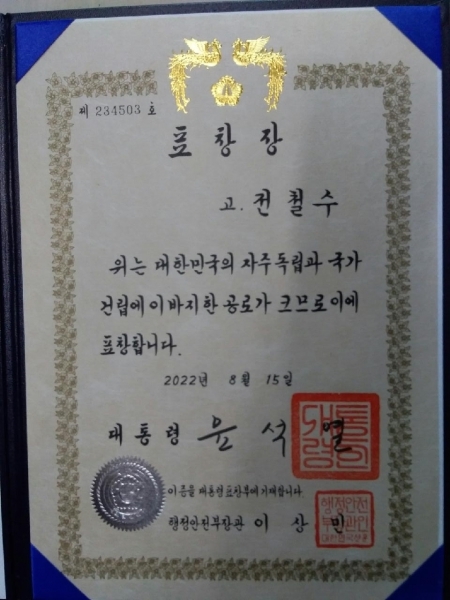 제 234503 호
표창장
고. 전철수
위는 대한민국의 자주독립과 국가
건립에 이바지한 공로가 크므로 이에
표창합니다.
2022년 8월 15일
대통령 윤석열
대통령인
이 증을 대통령표창부에 기재합니다.
행정안전부장관 이상민
행정안전
부장관인